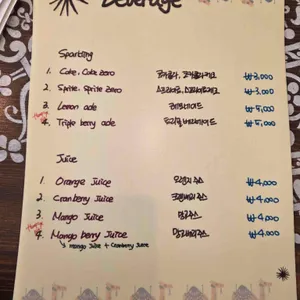 Beverage
Sparkling
1. Coke, Coke Zero 코카콜라, 코카콜라 제로 ₩3,000
2. Sprite, Sprite Zero 스프라이트, 스프라이트 제로 ₩3,000
3. Lemon ade 레몬에이드 ₩5,000
4. Triple berry ade 트리플 베리에이드 ₩5,000
Juice
1. Orange Juice 오렌지 주스 ₩4,000
2. Cranberry Juice 크랜베리 주스 ₩4,000
3. Mango Juice 망고주스 ₩4,000
4. Mango berry Juice 망고베리주스 ₩4,000
↳ mango Juice + Cranberry Juice